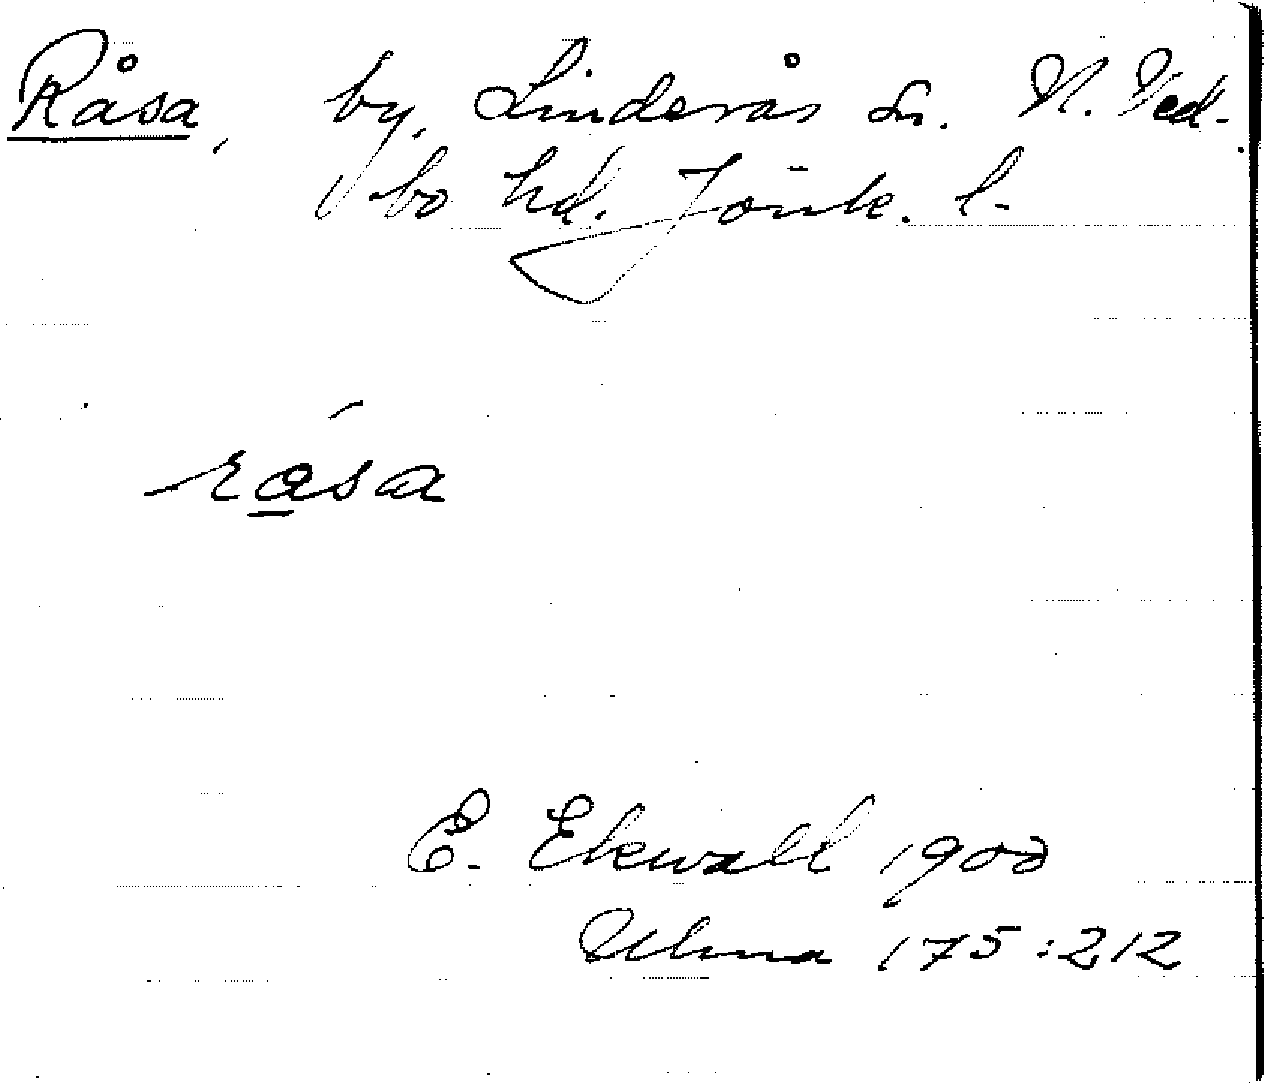 Råsa, by, Linderås sn. N. Ved-
bo hd. Jönk. l.
råsa
E. Ekwall 1900
Ulma 175:212